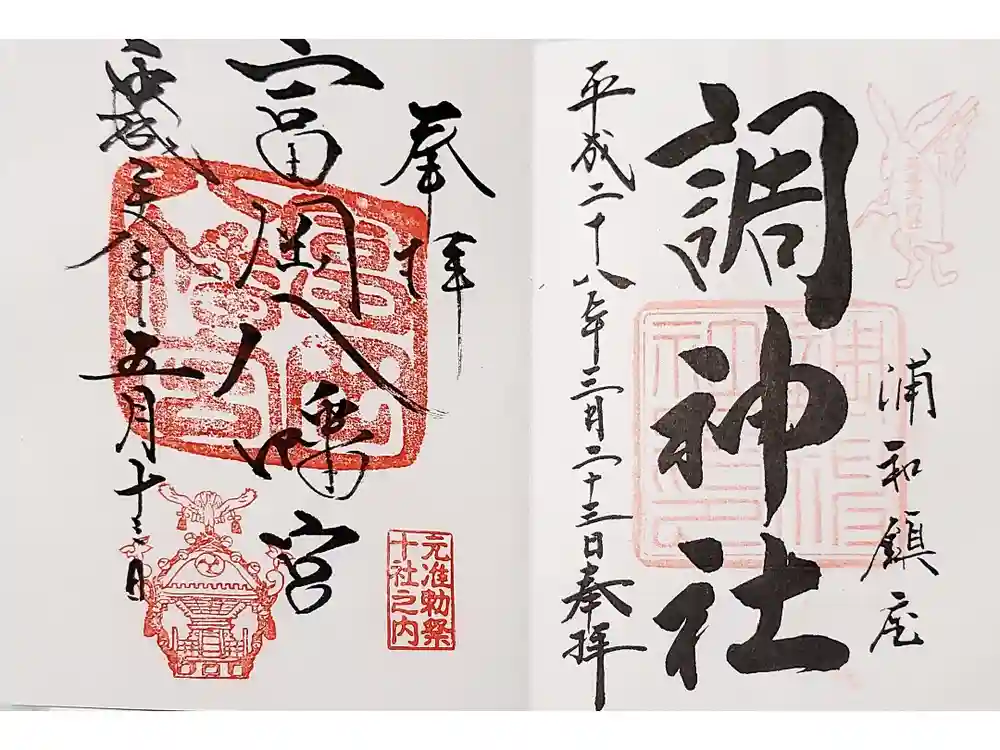 浦和鎮座
調神社
平成二十八年三月二十三日奉拝
奉拝
富岡八幡宮
五月十三日
元准勅祭
十社之内